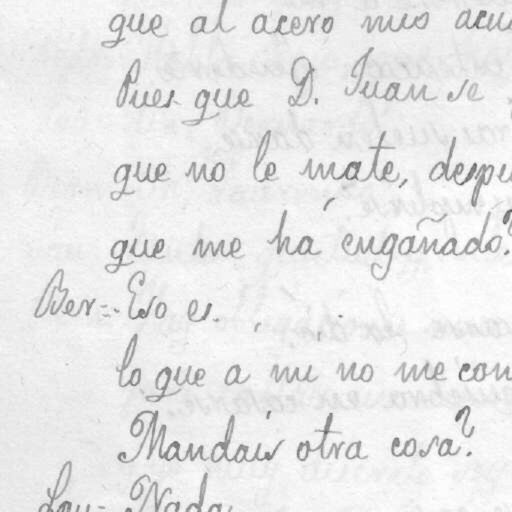 que al acero mis acu
Pues que D. Juan se
que no le mate, despu
que me há engañado?
Ber=. Eso es.
lo que a mi no me con
Mandais otra cosa?
Lau= Nada